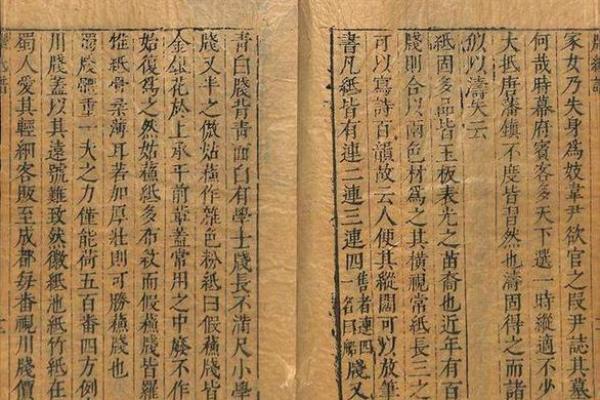 家女乃失身爲妓韋尹欲官之段尹誌其墓
何哉時幕府賓客多天下選一時縱適不少
大抵唐藩鎭不度皆習然也濤固得之而諸
以濤失云
紙固多品皆玉板表光之苗裔也近年有
牋則合以兩色材爲之其橫視常紙長三之
可以寫詩百韻故云人便其縱闊可以放筆
書凡紙皆有連二連三連四售者連四一名曰船牋又
青白牋背青面白有學士牋長不滿尺小學
牋又半之倣姑蘇作雜色粉紙曰假蘇牋皆
金銀花於上承平前輩蓋常用之中廢不作
始復爲之然姑蘇紙多布紋而假蘇牋皆羅
惟紙骨柔薄耳若加厚壯則可勝蘇牋也
蜀牋體重一夫之力僅能荷五百番四方例
川牋蓋以其遠號難致然徽紙池紙竹紙在
蜀人愛其輕細客販至成都每番視川牋價